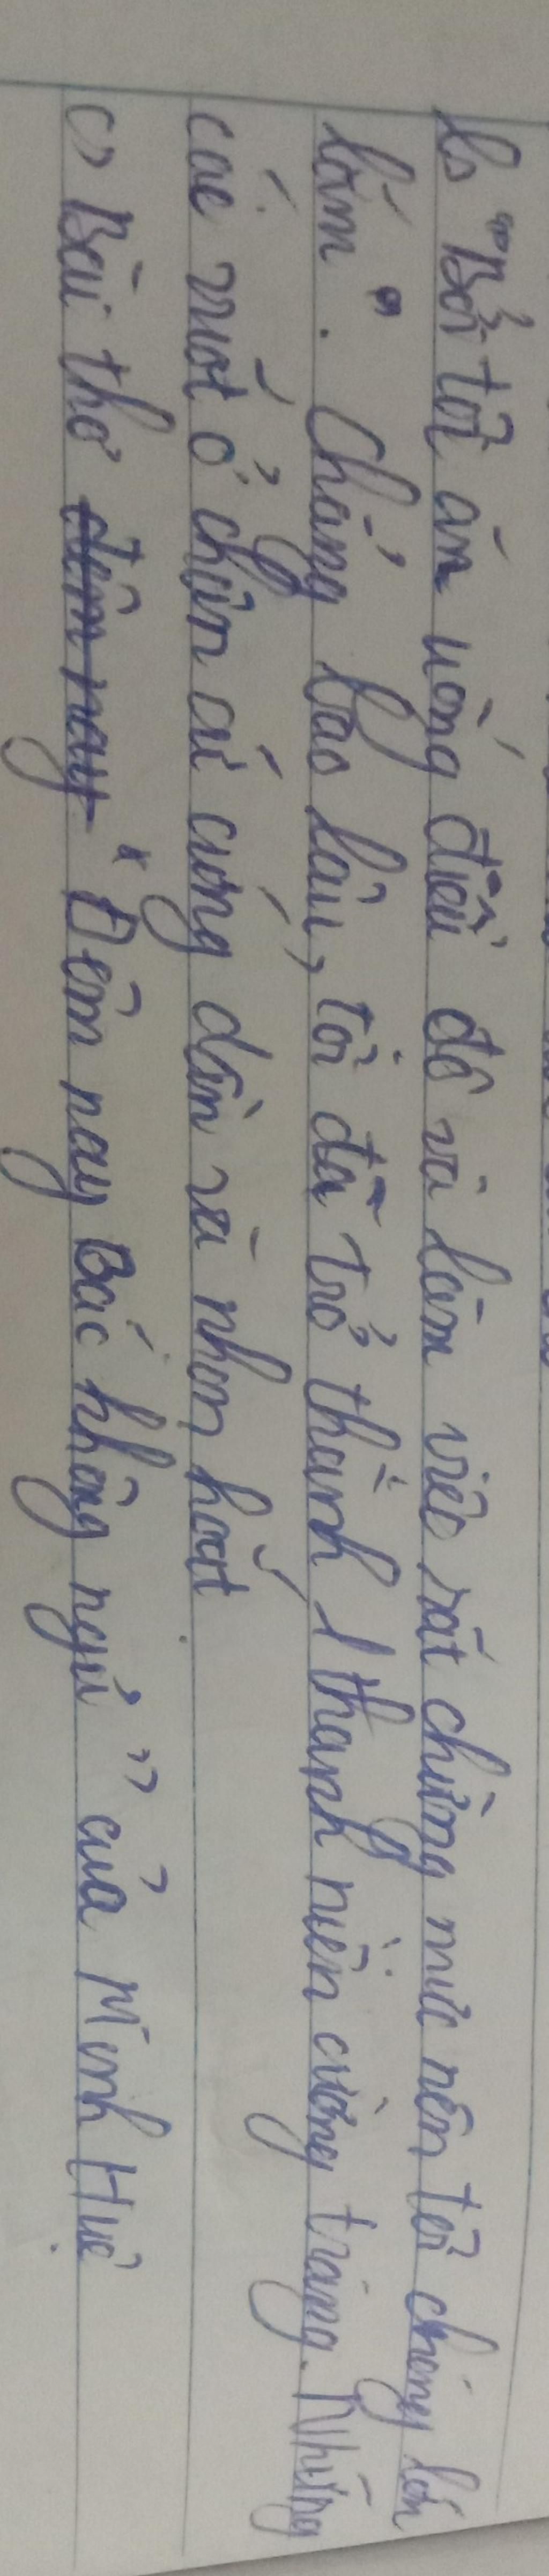 b, "Bởi tôi ăn uống điều độ và làm việc rất chừng mực nên tôi chóng lớn
lắm". Chẳng bao lâu, tôi đã trở thành 1 thanh niên cường tráng. Những
các vuốt ở chân cứ cứng dần và nhọn hoắt.
c, Bài thơ đêm nay "Đêm nay Bác không ngủ" của Minh Huệ